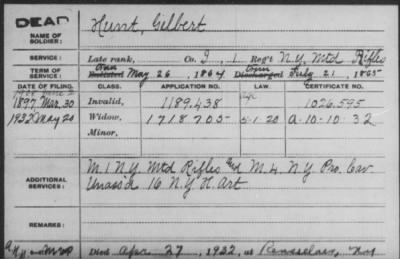 DEAD
Hunt, Gilbert
NAME OF SOLDIER:
SERVICE: Late rank, Co. I, 1 Reg't N.Y. Mtd Rifles
TERM OF SERVICE: Enlisted May 26, 1864 Discharged July 21, 1865
DATE OF FILING. CLASS. APPLICATION NO. LAW. CERTIFICATE NO.
1897, Mar. 30 Invalid, 1189.438 1026.595
1932, May 20 Widow, 1718705 5-1-20 A-10-10-32
Minor,
ADDITIONAL SERVICES: M. 1 N.Y. Mtd Rifles and M. 4, N.Y. Pro. Cav
Unass'd 16 N.Y. H. Art
REMARKS:
Died Apr. 27, 1932, at Rensselaer, N.Y.